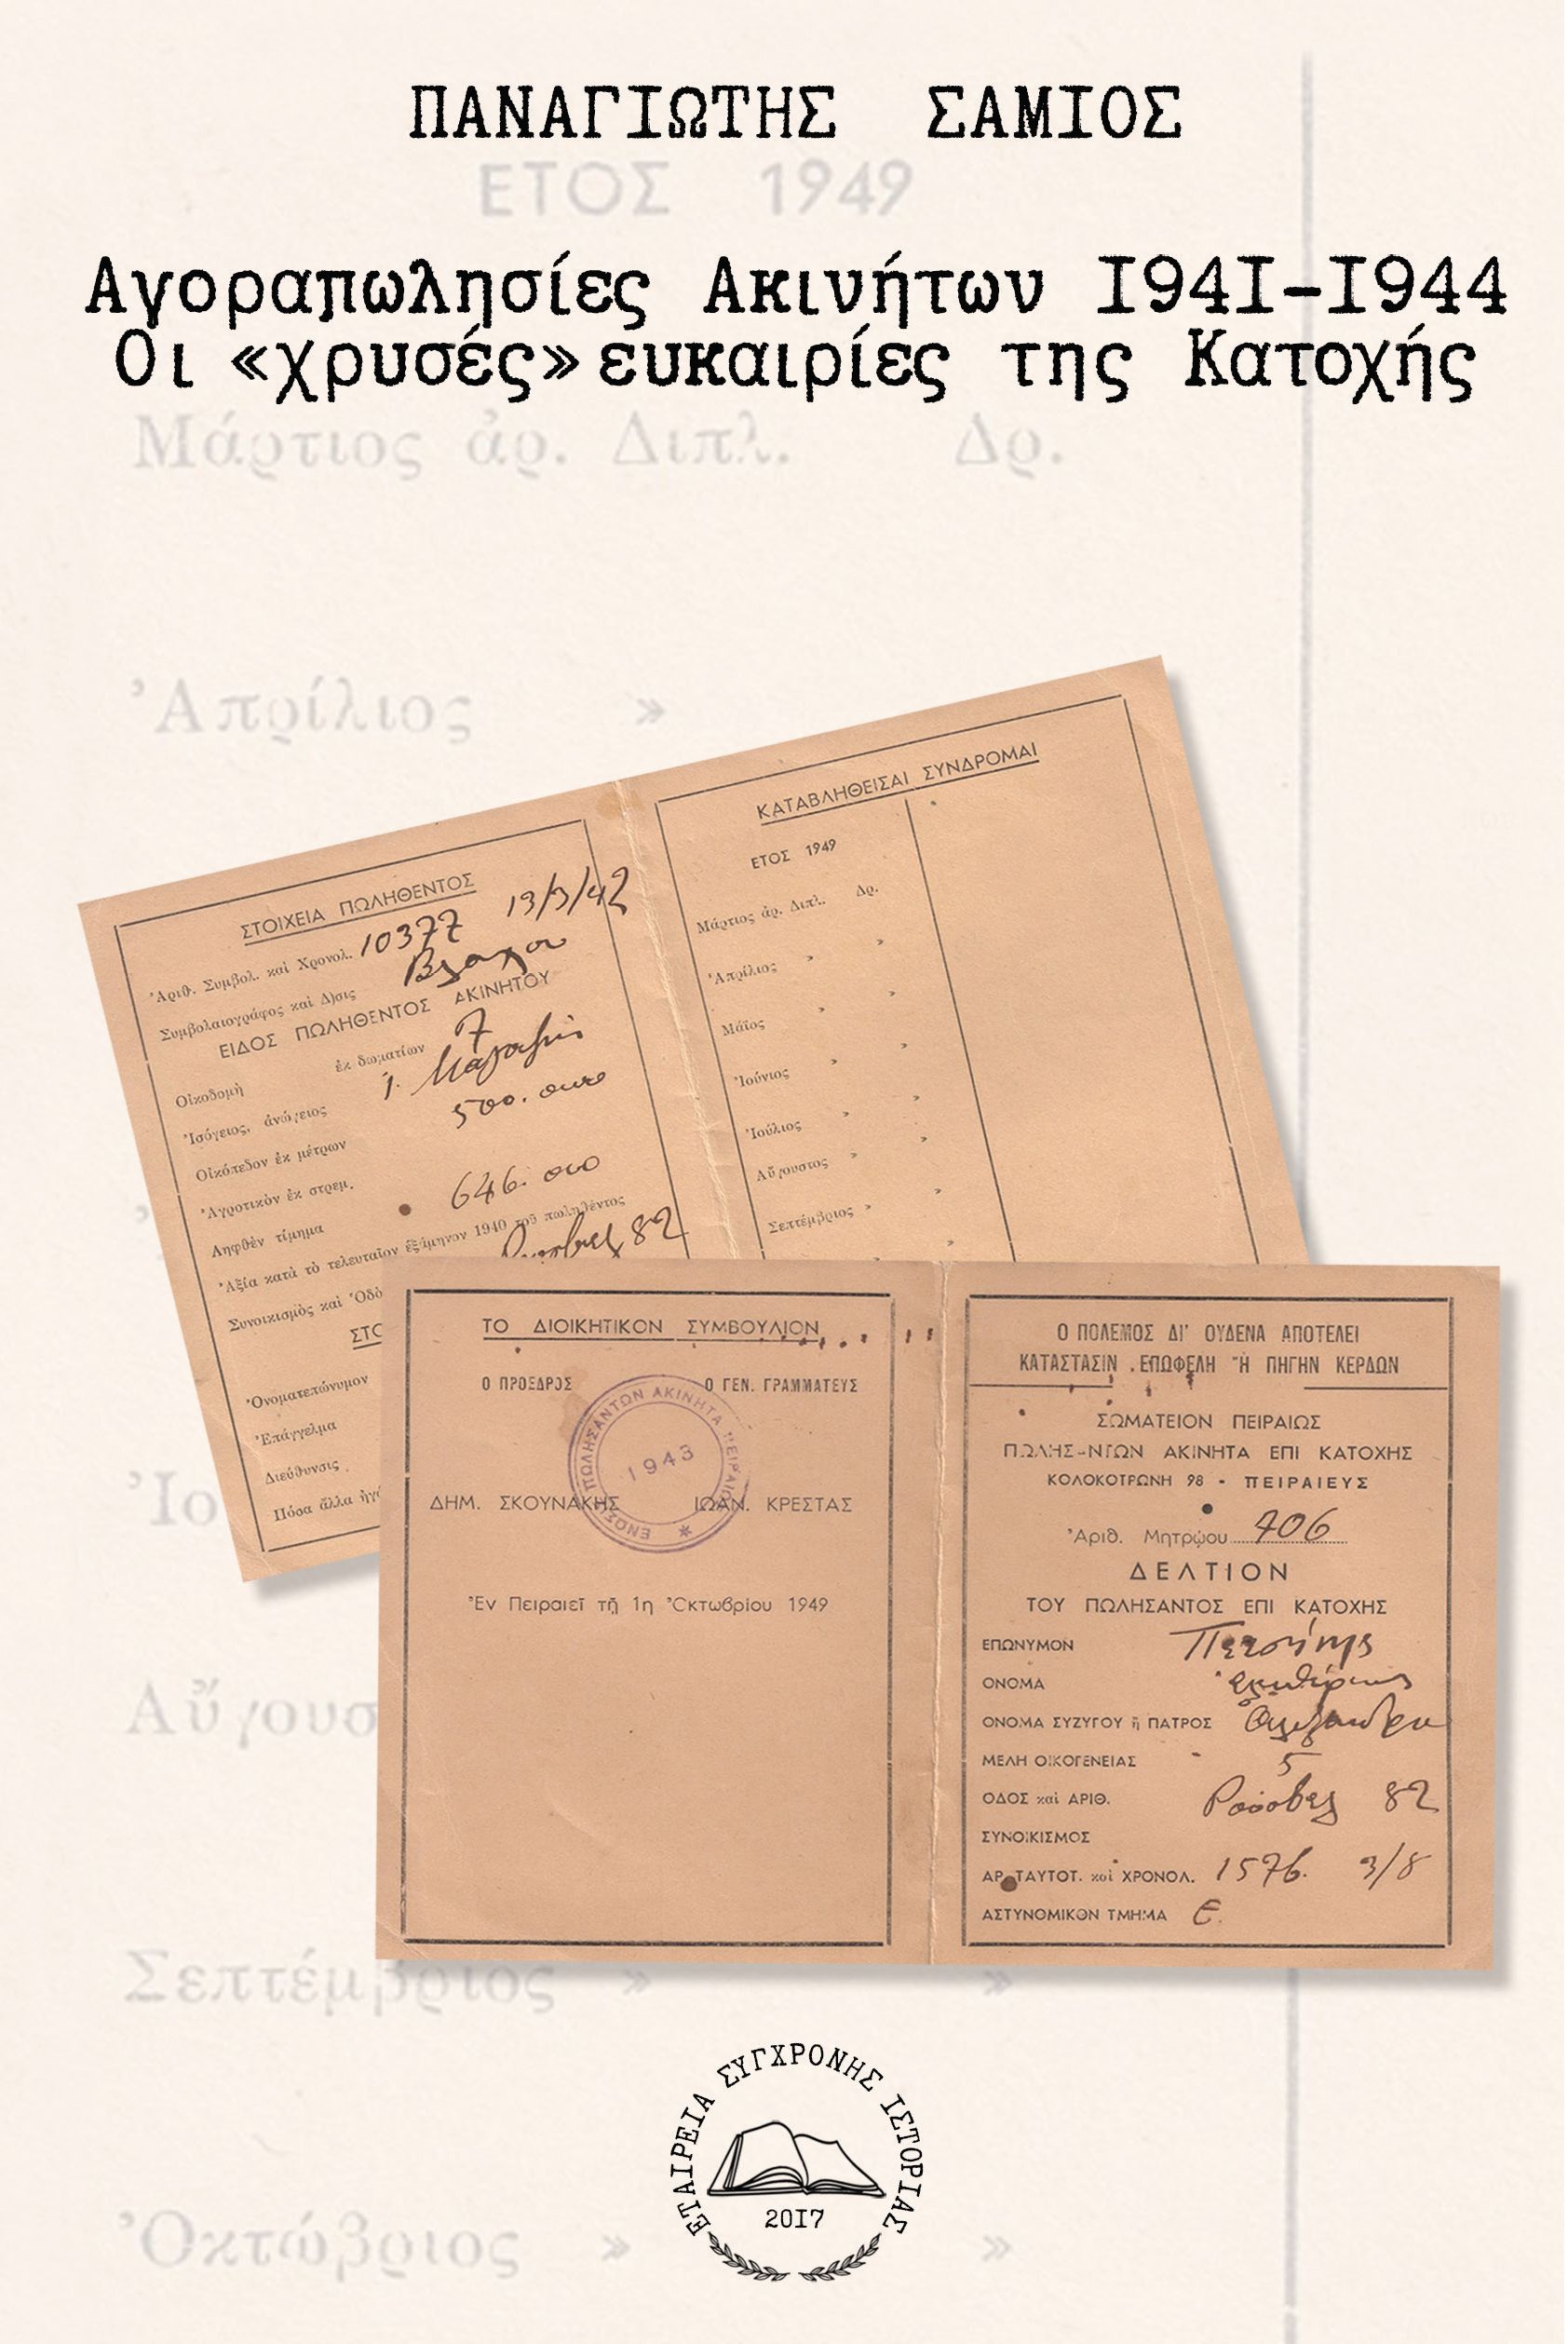 ΠΑΝΑΓΙΩΤΗΣ ΣΑΜΙΟΣ
ΕΤΟΣ 1949
Αγοραπωλησίες Ακινήτων 1941-1944
Οι «χρυσές» ευκαιρίες της Κατοχής
Μάρτιος ἀρ. Διπλ. Δρ.
Ἀπρίλιος »
ΣΤΟΙΧΕΙΑ ΠΩΛΗΘΕΝΤΟΣ
Ἀριθ. Συμβολ. καὶ Χρονολ. 10377 13/3/42
Συμβολαιογράφος καὶ Δ)σις Βλαχου
ΕΙΔΟΣ ΠΩΛΗΘΕΝΤΟΣ ΑΚΙΝΗΤΟΥ
Οἰκοδομὴ ἐκ δωματίων 7
Ἰσόγειος, ἀνώγειος 1. Μαγαζὶ
Οἰκόπεδον ἐκ μέτρων 500.
Ἀγροτικὸν ἐκ στρεμ.
Ληφθὲν τίμημα 646.000
Ἀξία κατὰ τὸ τελευταῖον ἑξάμηνον 1940 τοῦ πωληθέντος
Συνοικισμὸς καὶ Ὁδὸ 82
ΣΤΟ
Ὀνοματεπώνυμον
Ἐπάγγελμα
Διεύθυνσις
Πόσα ἄλλα ἠγό
ΚΑΤΑΒΛΗΘΕΙΣΑΙ ΣΥΝΔΡΟΜΑΙ
ΕΤΟΣ 1949
Μάρτιος ἀρ. Διπλ. Δρ.
Ἀπρίλιος » »
Μάϊος » »
Ἰούνιος » »
Ἰούλιος » »
Αὔγουστος » »
Σεπτέμβριος » »
ΤΟ ΔΙΟΙΚΗΤΙΚΟΝ ΣΥΜΒΟΥΛΙΟΝ
Ο ΠΡΟΕΔΡΟΣ Ο ΓΕΝ. ΓΡΑΜΜΑΤΕΥΣ
ΕΝΩΣΙΣ ΠΩΛΗΣΑΝΤΩΝ ΑΚΙΝΗΤΑ ΠΕΙΡΑΙΩΣ
1943
ΔΗΜ. ΣΚΟΥΝΑΚΗΣ ΙΩΑΝ. ΚΡΕΣΤΑΣ
Ἐν Πειραιεῖ τῇ 1η Ὀκτωβρίου 1949
Ο ΠΟΛΕΜΟΣ ΔΙ' ΟΥΔΕΝΑ ΑΠΟΤΕΛΕΙ
ΚΑΤΑΣΤΑΣΙΝ ΕΠΩΦΕΛΗ Ἢ ΠΗΓΗΝ ΚΕΡΔΩΝ
ΣΩΜΑΤΕΙΟΝ ΠΕΙΡΑΙΩΣ
ΠΩΛΗΣ-ΝΤΩΝ ΑΚΙΝΗΤΑ ΕΠΙ ΚΑΤΟΧΗΣ
ΚΟΛΟΚΟΤΡΩΝΗ 98 - ΠΕΙΡΑΙΕΥΣ
Ἀριθ. Μητρῴου 406
ΔΕΛΤΙΟΝ
ΤΟΥ ΠΩΛΗΣΑΝΤΟΣ ΕΠΙ ΚΑΤΟΧΗΣ
ΕΠΩΝΥΜΟΝ
ΟΝΟΜΑ
ΟΝΟΜΑ ΣΥΖΥΓΟΥ ἢ ΠΑΤΡΟΣ
ΜΕΛΗ ΟΙΚΟΓΕΝΕΙΑΣ 5
ΟΔΟΣ καὶ ΑΡΙΘ. Ροσσβελ 82
ΣΥΝΟΙΚΙΣΜΟΣ
ΑΡ. ΤΑΥΤΟΤ. καὶ ΧΡΟΝΟΛ. 1576. 3/8
ΑΣΤΥΝΟΜΙΚΟΝ ΤΜΗΜΑ Ε.
Ἰο
Αὔγουσ
Σεπτέμβριος » »
Ὀκτώβριος » »
ΕΤΑΙΡΕΙΑ ΣΥΓΧΡΟΝΗΣ ΙΣΤΟΡΙΑΣ
2017